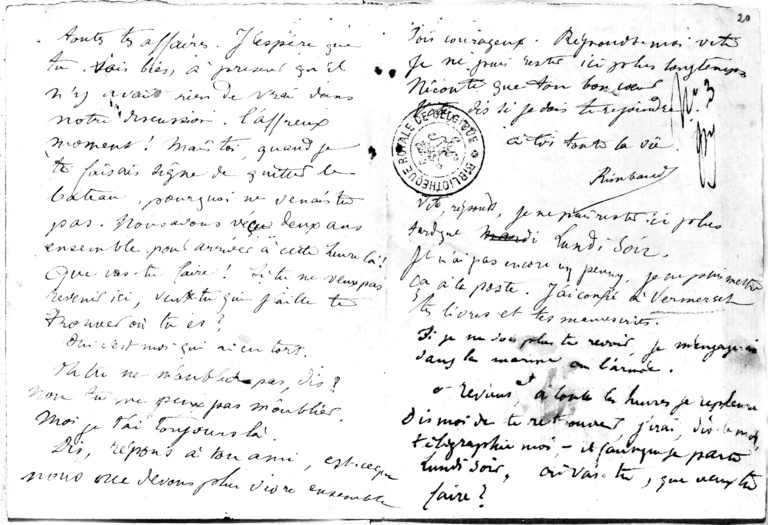 toutes tes affaires. J'espère que
tu sais bien à présent qu'il
n'y avait rien de vrai dans
notre discussion. l'affreux
moment! Mais toi, quand je
te faisais signe de quitter le
bateau, pourquoi ne venais tu
pas. Nous avons vécu deux ans
ensemble pour arriver à cette heure là!
Que vas-tu faire! Si tu ne veux pas
revenir ici, veux-tu que j'aille te
trouver où tu es?
Oui c'est moi qui ai eu tort.
Oh tu ne m'oublieras pas, dis?
Non tu ne peux pas m'oublier.
Moi je t'ai toujours là.
Dis, répons à ton ami, est-ce que
nous ne devons plus vivre ensemble
20
Sois courageux. Réponds-moi vite
Je ne puis rester ici plus longtemps
N'écoute que ton bon cœur
Vite, dis si je dois te rejoindre
No 3
à toi toute la vie.
Rimbaud
BIBLIOTHÈQUE ROYALE DE BELGIQUE
Vite, réponds, je ne puis rester ici plus
tard que lundi soir.
Je n'ai pas encore un penny, je ne puis mettre
ça à la poste. J'ai confié à Vermersch
tes livres et tes manuscrits.
Si je ne dois plus te revoir, je m'engagerai
dans la marine ou l'armée.
o reviens, à toutes les heures je repleure
Dis moi de te retrouver, j'irai, dis-le moi,
télégraphie moi - il faut que je parte
lundi soir, où vas-tu, que veux tu
faire?